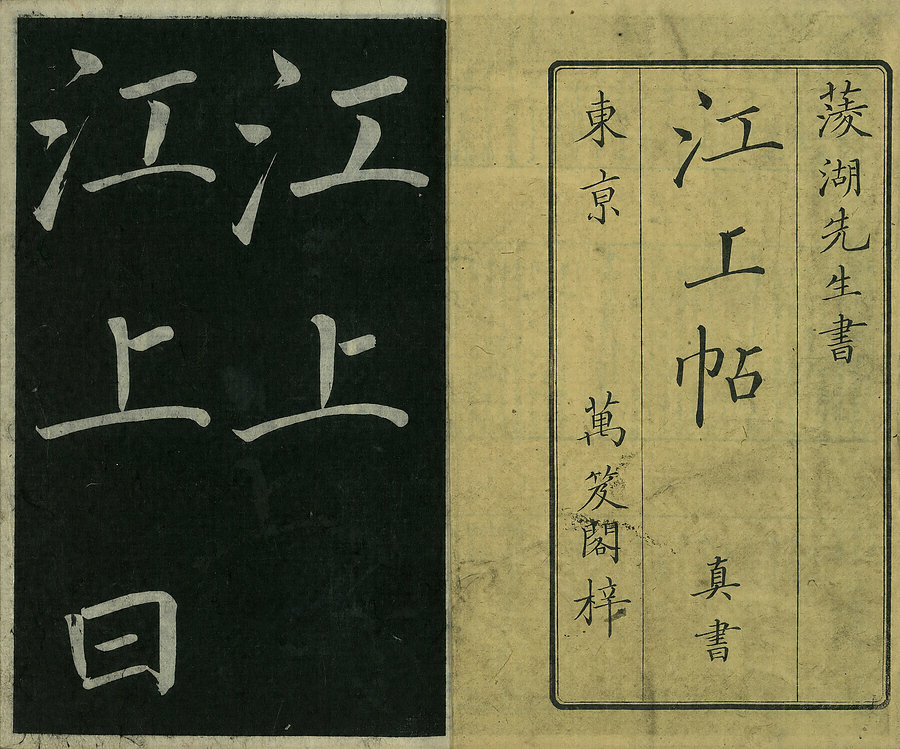 菱湖先生書
江上帖 真書
東京 萬笈閣梓
江上
江上日